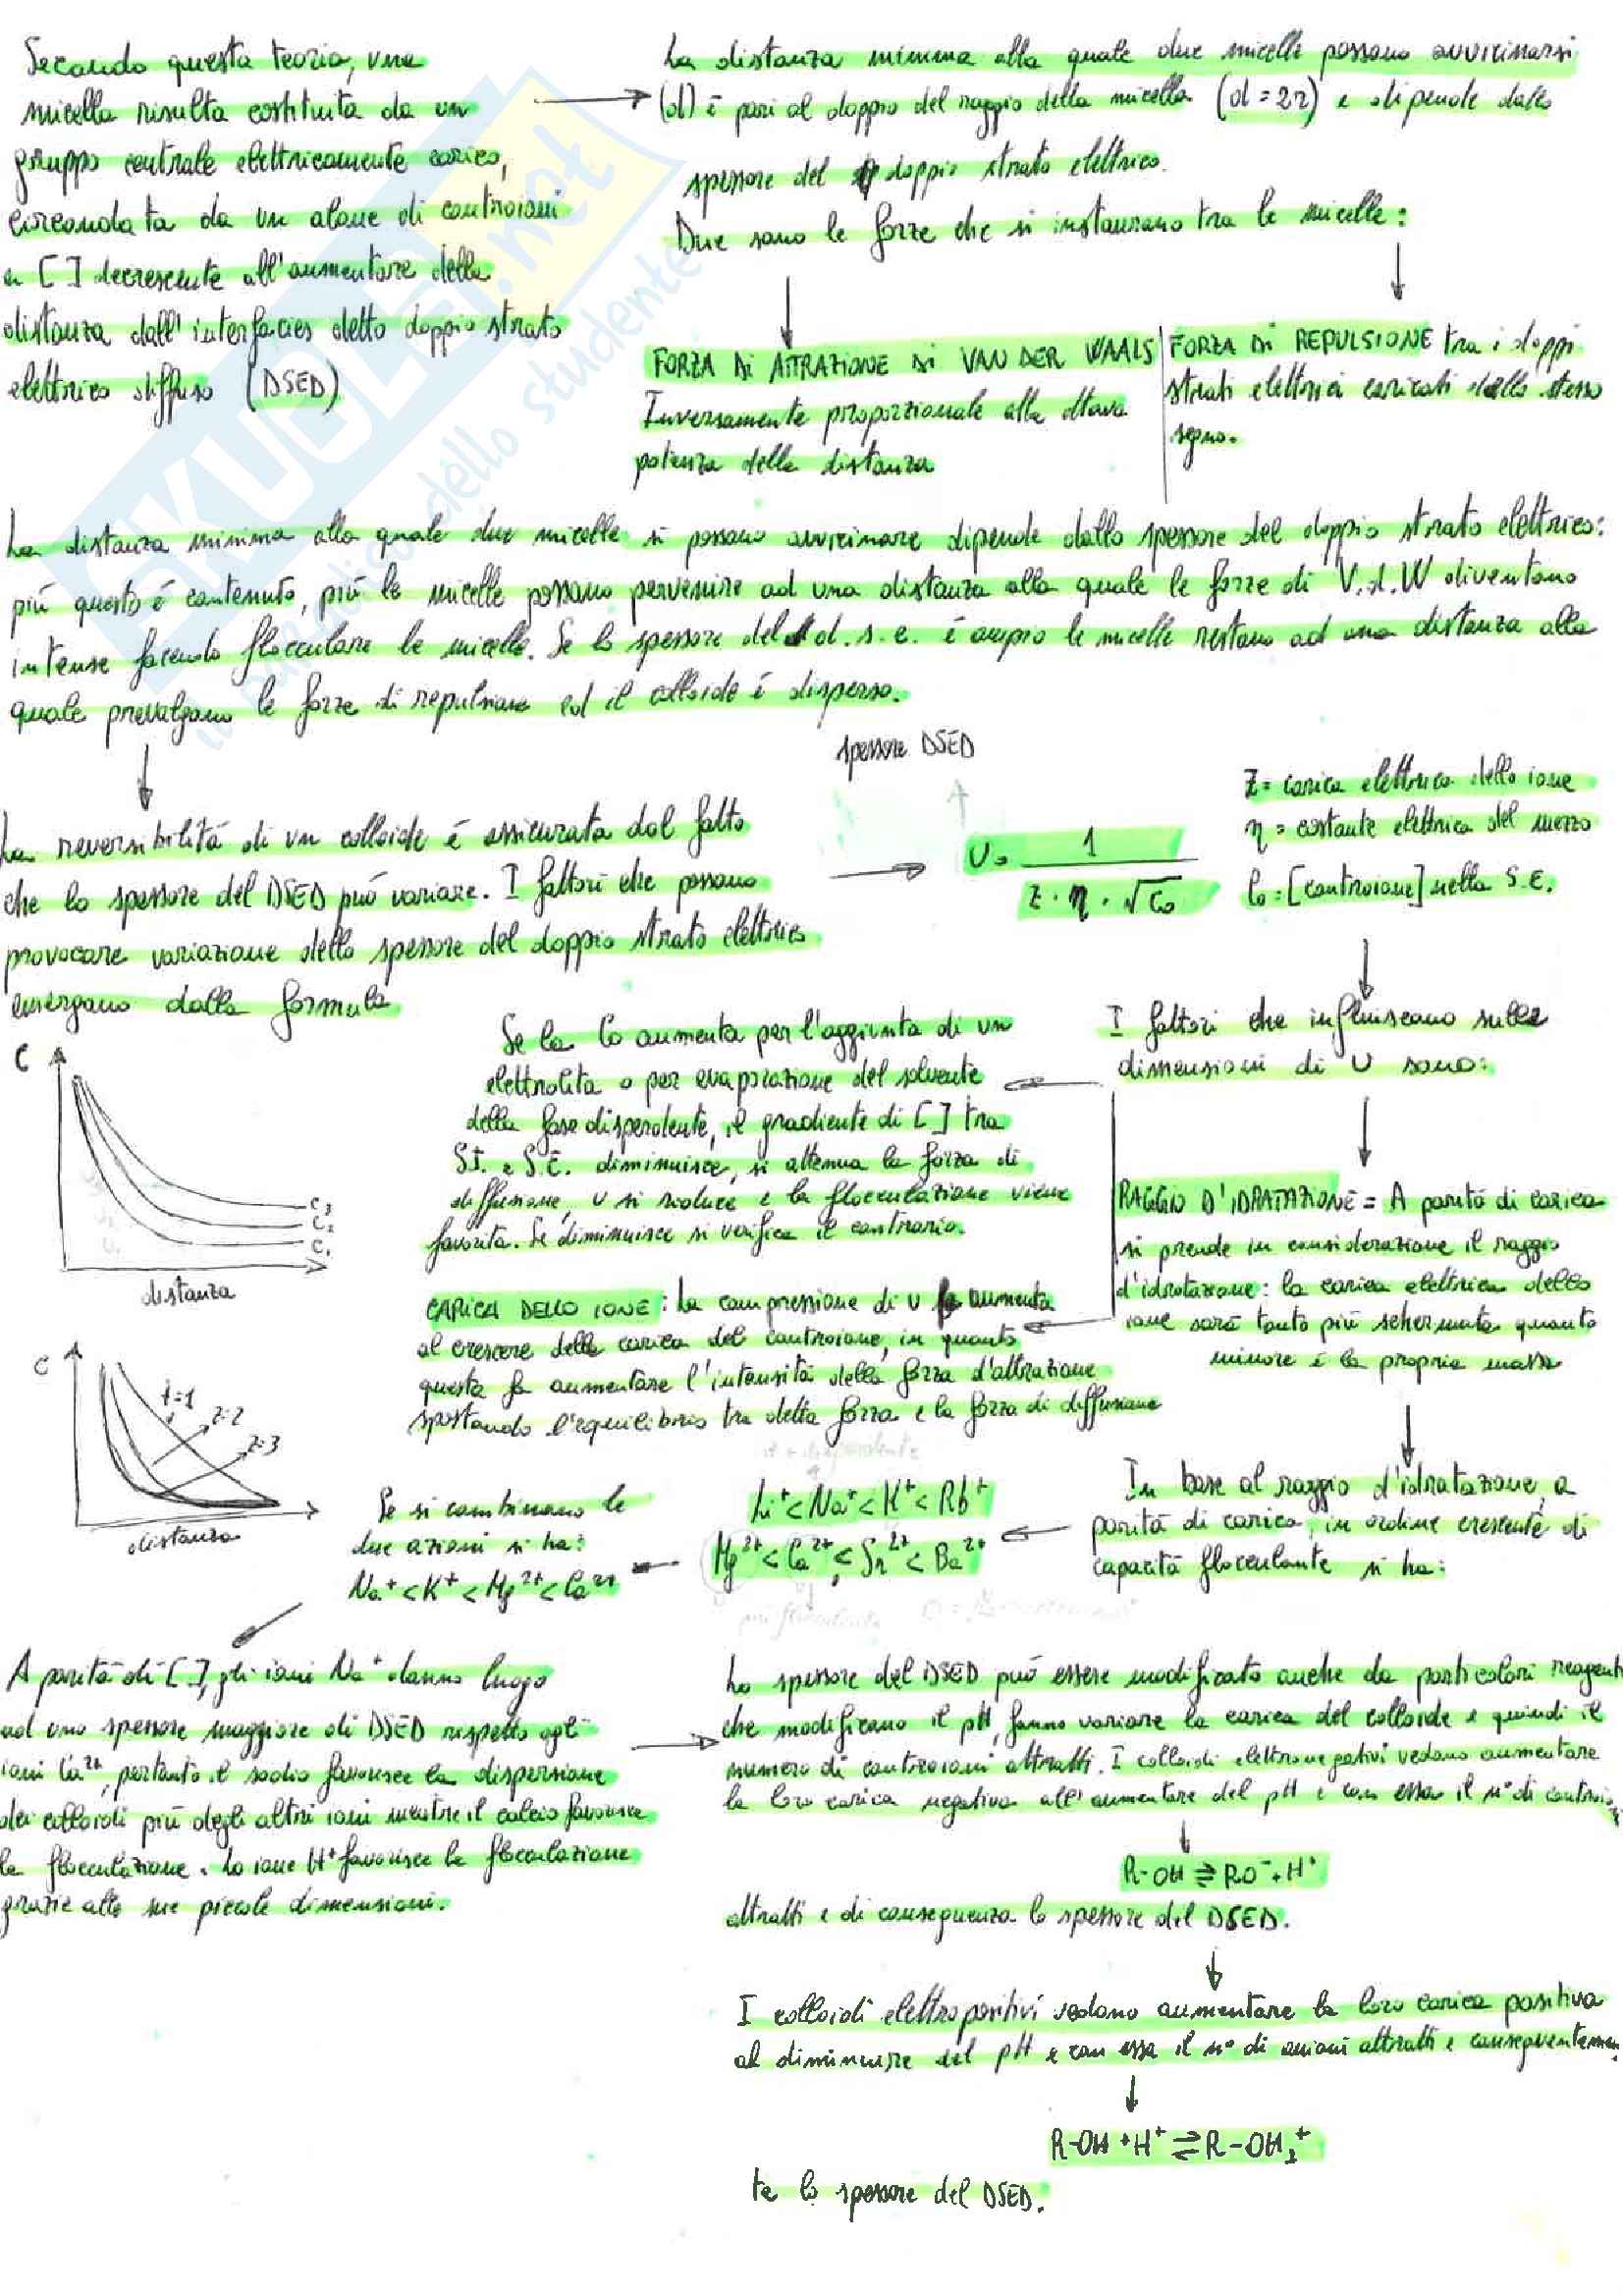 Secondo questa teoria, una
micella risulta costituita da un
gruppo centrale elettricamente carico,
circondata da un alone di controioni
a [ ] decrescente all'aumentare della
distanza dall'interfacies detto doppio strato
elettrico diffuso (DSED)
La distanza minima alla quale due micelle possono avvicinarsi
(d) è pari al doppio del raggio della micella (d = 2r) e dipende dallo
spessore del doppio strato elettrico.
Due sono le forze che si instaurano tra le micelle:
FORZA DI ATTRAZIONE DI VAN DER WAALS
Inversamente proporzionale alla ottava
potenza della distanza
FORZA DI REPULSIONE tra i doppi
strati elettrici caricati dello stesso
segno.
La distanza minima alla quale due micelle si possono avvicinare dipende dallo spessore del doppio strato elettrico:
più questo è contenuto, più le micelle possono pervenire ad una distanza alla quale le forze di V.d.W diventano
intense facendo flocculare le micelle. Se lo spessore del d.s.e. è ampio le micelle restano ad una distanza alla
quale prevalgono le forze di repulsione ed il colloide è disperso.
La reversibilità di un colloide è assicurata dal fatto
che lo spessore del DSED può variare. I fattori che possono
provocare variazione dello spessore del doppio strato elettrico
emergano dalla formula
spessore DSED
U = 1 / (Z · η · √Co)
Z = carica elettrica dello ione
η = costante elettrica del mezzo
Co = [controione] nella S.E.
I fattori che influiscono sulle
dimensioni di U sono:
Se la Co aumenta per l'aggiunta di un
elettrolita o per evaporazione del solvente
della fase disperdente, il gradiente di [ ] tra
S.I. e S.E. diminuisce, si attenua la forza di
diffusione, U si riduce e la flocculazione viene
favorita. Se diminuisce si verifica il contrario.
C
C3
C2
C1
distanza
CARICA DELLO IONE: La compressione di U aumenta
al crescere della carica del controione, in quanto
questa fa aumentare l'intensità della forza d'attrazione
spostando l'equilibrio tra detta forza e la forza di diffusione
RAGGIO D'IDRATAZIONE = A parità di carica
si prende in considerazione il raggio
d'idratazione: la carica elettrica dello
ione sarà tanto più schermata quanto
minore è la propria massa
C
z=1
z=2
z=3
distanza
In base al raggio d'idratazione, a
parità di carica, in ordine crescente di
capacità flocculante si ha:
Li+ < Na+ < K+ < Rb+
Mg2+ < Ca2+ < Sr2+ < Ba2+
Se si combinano le
due azioni si ha:
Na+ < K+ < Mg2+ < Ca2+
A parità di [ ], gli ioni Na+ danno luogo
ad uno spessore maggiore di DSED rispetto agli
ioni Ca2+, pertanto il sodio favorisce la dispersione
dei colloidi più degli altri ioni mentre il calcio favorisce
la flocculazione. Lo ione H+ favorisce la flocculazione
grazie alle sue piccole dimensioni.
Lo spessore del DSED può essere modificato anche da particolari reagenti
che modificano il pH, fanno variare la carica del colloide e quindi il
numero di controioni attratti. I colloidi elettronegativi vedono aumentare
la loro carica negativa all'aumentare del pH e con essa il n° di controioni
R-OH ⇌ RO⁻ + H⁺
attratti e di conseguenza lo spessore del DSED.
I colloidi elettropositivi vedono aumentare la loro carica positiva
al diminuire del pH e con essa il n° di anioni attratti e conseguentemen
R-OH + H⁺ ⇌ R-OH₂⁺
te lo spessore del DSED.
SKUOLA.net
il paradiso dello studente